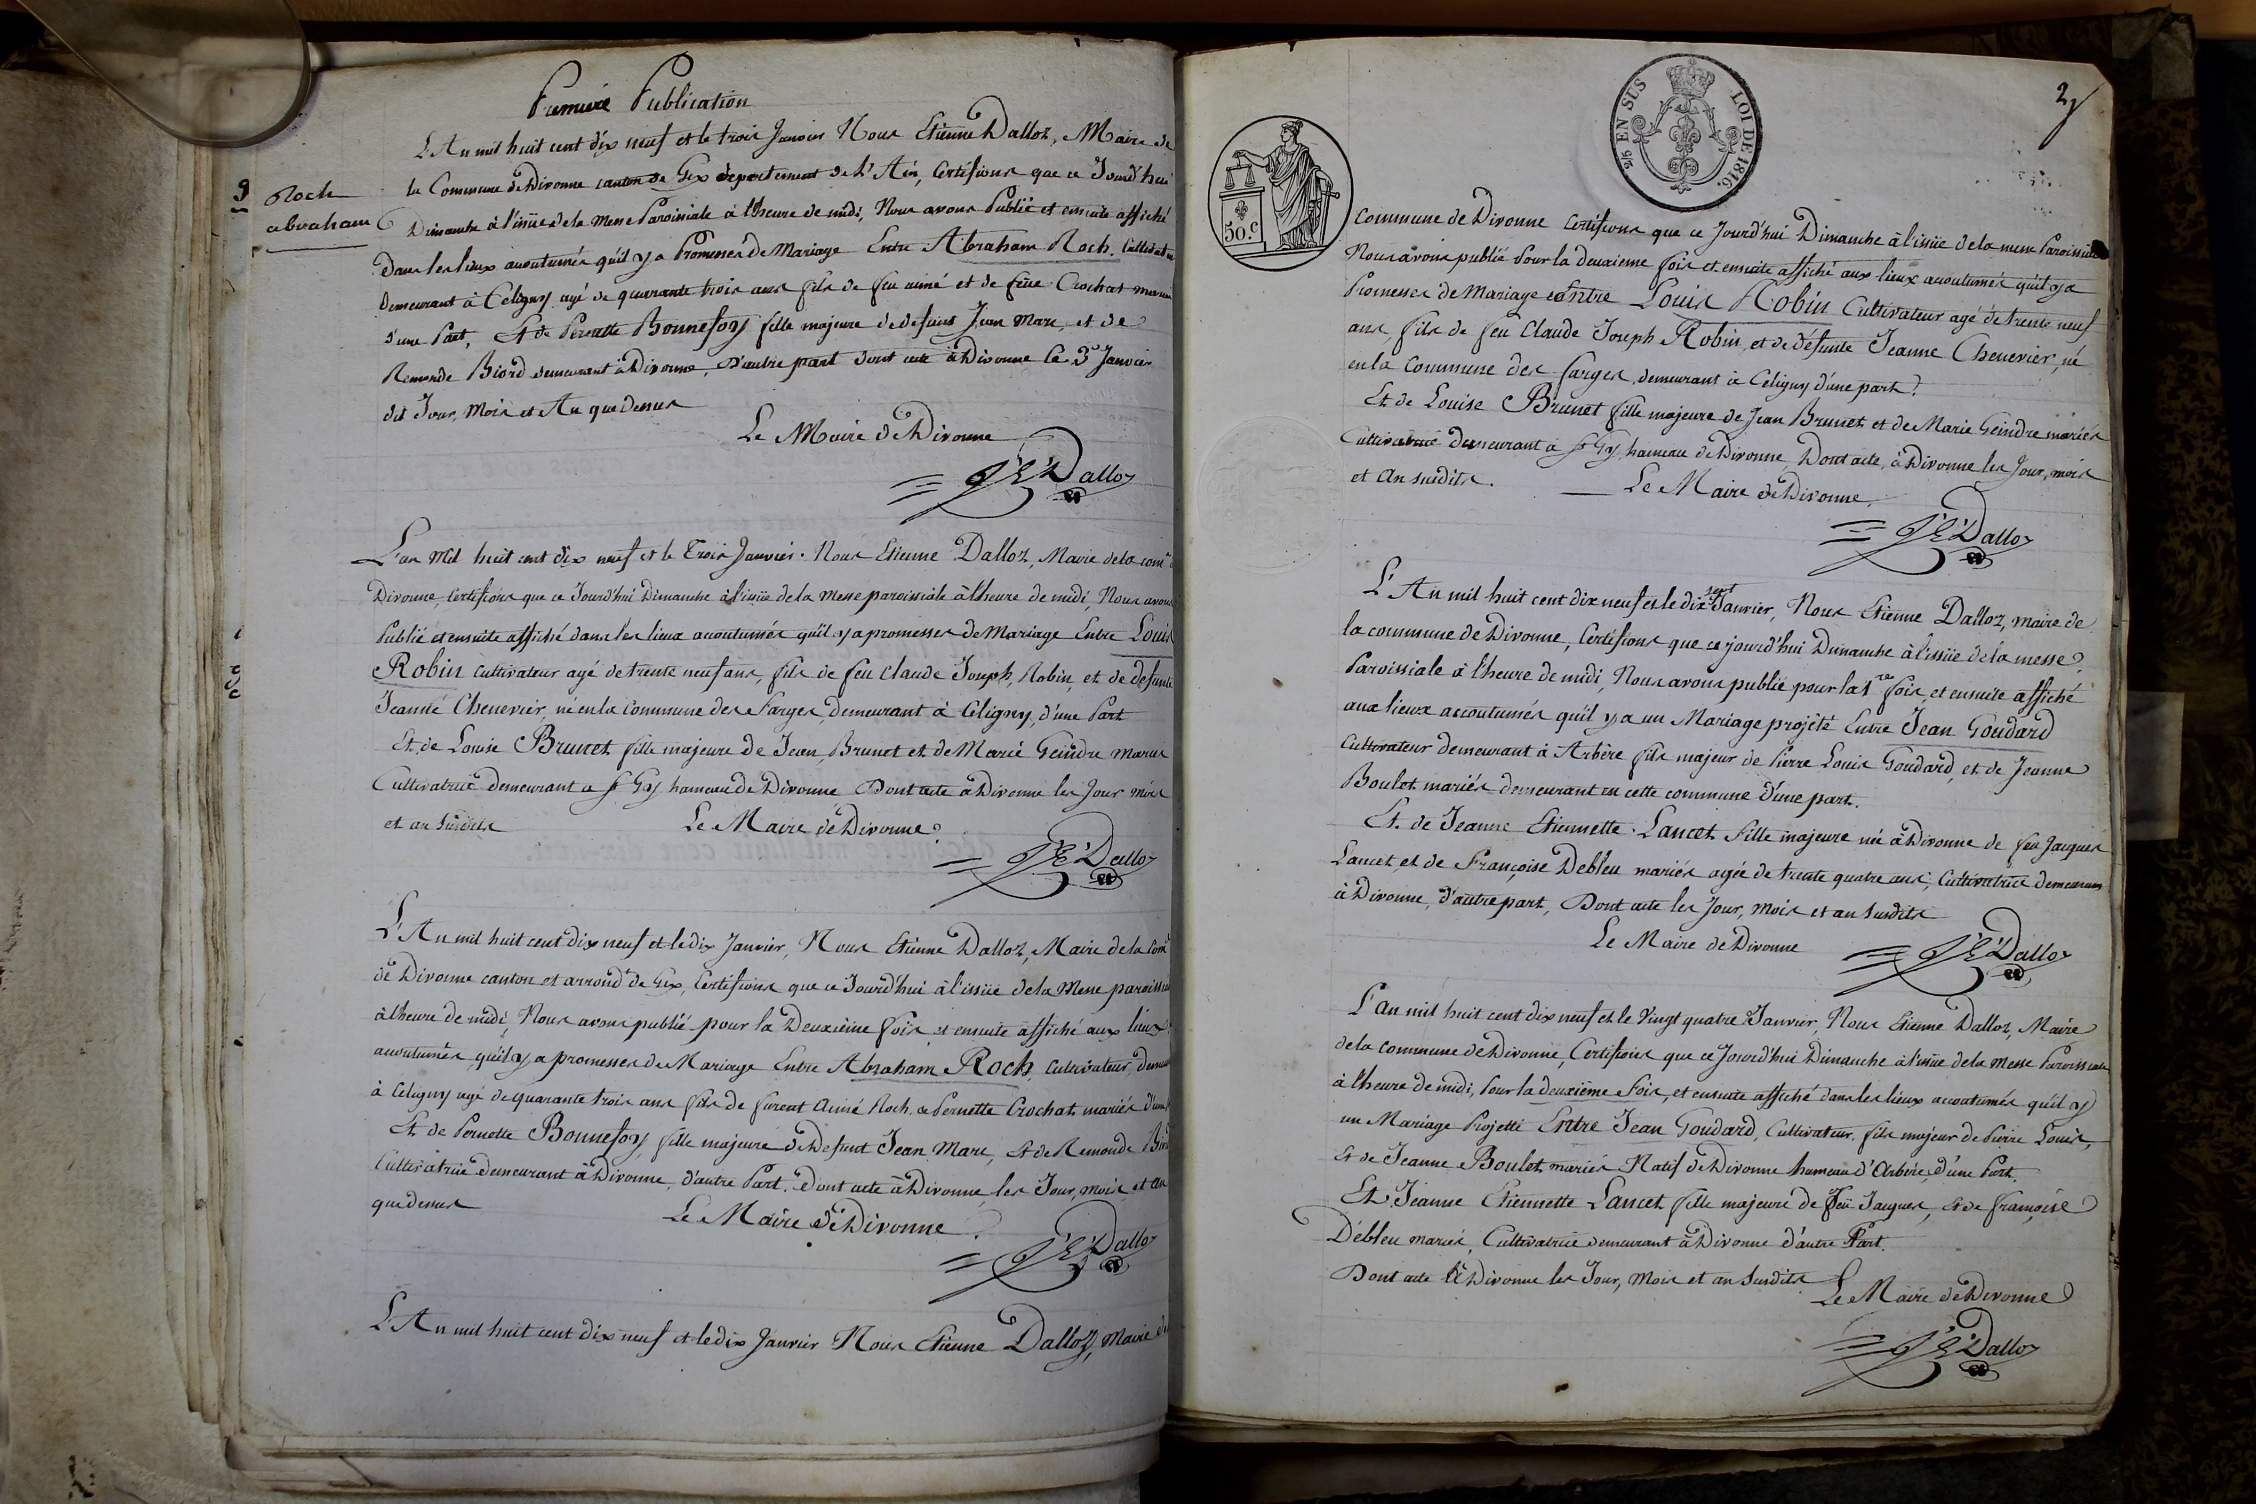 Premiere Publication
L'An mil huit cent dix neuf et le trois Janvier Nous Etienne Dalloz, Maire de
la Commune de Divonne canton de Gex departement de l'Ain, Certifions que ce Jourd'hui
9 Roch abraham
Dimanche à l'issüe de la Messe Paroissiale à l'heure de midi, Nous avons Publié et ensuite affiché
dans les lieux acoutumés qu'il y a Promesses de Mariage Entre Abraham Roch, Cultivateur
demeurant à Celigny agé de quarante trois ans fils de feu aimé et de feüe Crochat
d'une Part, Et de Pernette Bonnefoy fille majeure de defunt Jean Marc, et de
Remonde Biord demeurant à Divonne, D'autre part dont acte à Divonne le 3e Janvier
dit Jour, Mois et An que dessus
Le Maire de Divonne
J E Dalloz
L'an Mil huit cent dix neuf et le Trois Janvier. Nous Etienne Dalloz, Maire de la com.e
Divonne, Certifions que ce Jourd'hui Dimanche à l'issüe de la Messe paroissiale à l'heure de midi, Nous avons
Publié et ensuite affiché dans les lieux acoutumés qu'il y a promesses de Mariage Entre Louis
Robin Cultivateur agé de trente neuf ans, fils de feu Claude Joseph Robin, et de defunte
Jeanne Chenevier, né en la Commune des Farges, demeurant à Céligny, d'une Part
Et de Louise Brunet fille majeure de Jean Brunet et de Marie Geindre mariés
Cultivatrice demeurant a St Gy hameau de Divonne Dont acte à Divonne les Jour mois
et an Susdits Le Maire de Divonne
J E Dalloz
L'An mil huit cent dix neuf et le dix Janvier, Nous Etienne Dalloz, Maire de la Com.e
de Divonne canton et arrond.t de Gex, Certifions que ce Jourd'hui à l'issüe de la Messe paroissiale
à l'heure de midi, Nous avons publié pour la Deuxième fois et ensuite affiché aux lieux
acoutumés, qu'il y a promesses de Mariage Entre Abraham Roch, Cultivateur, demeurant
à Celigny agé de quarante trois ans fils de furent Aimé Roch, et Pernette Crochat mariés d'une
Et de Pernette Bonnefoy, fille majeure de Defunt Jean Marc, et de Remonde Biord
Cultivatrice demeurant à Divonne, d'autre Part. Dont acte à Divonne, les Jour, mois, et an
que dessus Le Maire de Divonne
J E Dalloz
L'An mil huit cent dix neuf et le dix Janvier Nous Etienne Dalloz, Maire de
2
2/5 EN SUS LOI DE 1816.
50.c
Commune de Divonne Certifions que ce Jourd'hui Dimanche à l'issüe de la messe Paroissiale
Nous avons publié Pour la deuxieme fois et ensuite affiché aux lieux acoutumés qu'il y a
Promesses de Mariage entre Louis Robin Cultivateur agé de trente neuf
ans, fils de feu Claude Joseph Robin, et de défunte Jeanne Chenevier, né
en la Commune des farges, demeurant à Céligny d'une part.
Et de Louise Brunet fille majeure de Jean Brunet et de Marie Geindre mariés
Cultivatrice demeurant à St Gy hameau de Divonne, Dont acte, à Divonne les Jour, mois
et An susdits. Le Maire de Divonne
J E Dalloz
L'An mil huit cent dix neuf et le dix sept Janvier, Nous Etienne Dalloz, maire de
la commune de Divonne, Certifions que ce jourd'hui Dimanche à l'issüe de la messe
Paroissiale à l'heure de midi, Nous avons publié pour la 1re fois, et ensuite affiché
aux lieux accoutumés qu'il y a un Mariage projété Entre Jean Goudard
Cultivateur demeurant à Arbère fils majeur de Pierre Louis Goudard, et de Jeanne
Boulet mariés demeurant en cette commune d'une part.
Et de Jeanne Etiennette Lancet fille majeure née à Divonne de feu Jacques
Lancet, et de Françoise Debleu mariés agée de trente quatre ans, Cultivatrice demeurant
à Divonne, d'autre part, Dont acte les Jour, Mois et an susdits
Le Maire de Divonne
J E Dalloz
L'an mil huit cent dix neuf et le Vingt quatre Janvier, Nous Etienne Dalloz, Maire
de la commune de Divonne, Certifions que ce Jourd'hui Dimanche à l'issüe de la Messe Paroissiale
à l'heure de midi, Pour la deuxième fois, et ensuite affiché dans les lieux accoutumés qu'il y
un Mariage Projetté Entre Jean Goudard, Cultivateur, fils majeur de Pierre Louis,
et de Jeanne Boulet mariés Natif de Divonne hameau d'Arbère, d'une Part.
Et Jeanne Etiennette Lancet fille majeure de feu Jacques, et de françoise
Débleu mariés, Cultivatrice demeurant à Divonne d'autre Part.
Dont acte à Divonne les Jour, Mois et an Susdits
Le Maire de Divonne
J E Dalloz